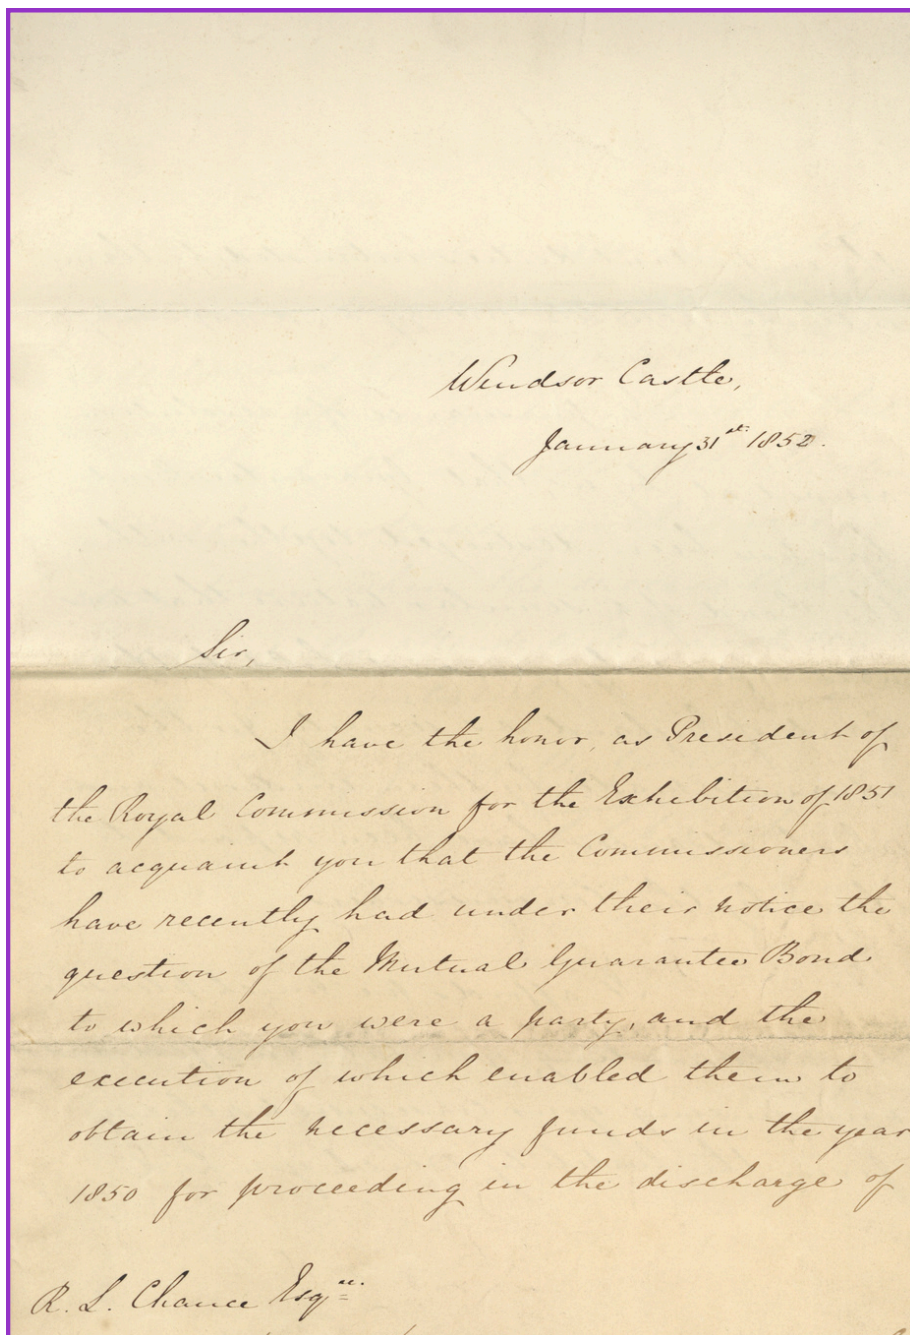 Windsor Castle,
January 31st 1852.
Sir,
I have the honor, as President of
the Royal Commission for the Exhibition of 1851
to acquaint you that the Commissioners
have recently had under their notice the
question of the Mutual Guarantee Bond
to which you were a party, and the
execution of which enabled them to
obtain the necessary funds in the year
1850 for proceeding in the discharge of
R. L. Chance Esqre.